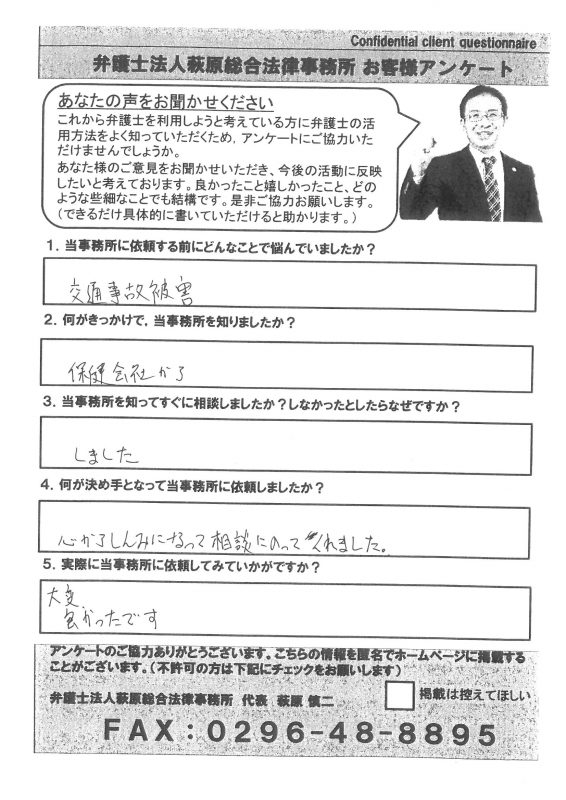 Confidential client questionnaire
弁護士法人萩原総合法律事務所 お客様アンケート
あなたの声をお聞かせください
これから弁護士を利用しようと考えている方に弁護士の活
用方法をよく知っていただくため，アンケートにご協力いた
だけませんでしょうか。
あなた様のご意見をお聞かせいただき、今後の活動に反映
したいと考えております。良かったこと嬉しかったこと、どの
ような些細なことでも結構です。是非ご協力お願いします。
（できるだけ具体的に書いていただけると助かります。）
1．当事務所に依頼する前にどんなことで悩んでいましたか？
交通事故被害
2．何がきっかけで，当事務所を知りましたか？
保健会社から
3．当事務所を知ってすぐに相談しましたか？しなかったとしたらなぜですか？
しました
4．何が決め手となって当事務所に依頼しましたか？
心からしんみになって相談にのってくれました。
5．実際に当事務所に依頼してみていかがですか？
大変
良かったです
アンケートのご協力ありがとうございます。こちらの情報を匿名でホームページに掲載する
ことがございます。（不許可の方は下記にチェックをお願いします）
弁護士法人萩原総合法律事務所 代表 萩原 慎二
掲載は控えてほしい
FAX：0296-48-8895